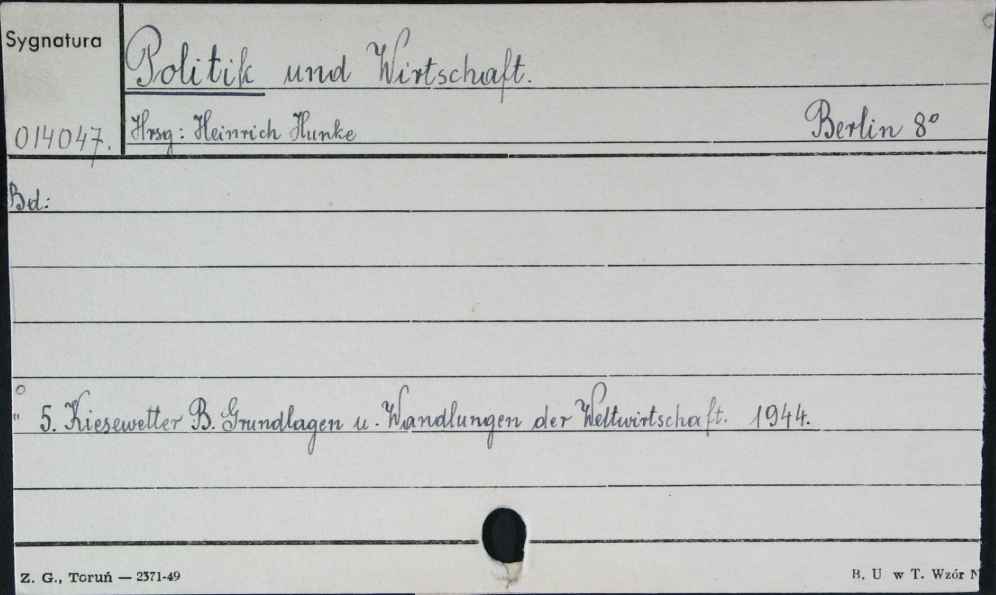 Sygnatura
Politik und Wirtschaft.
014047.
Hrsg: Heinrich Hunke
Berlin 8°
Bd:
" 5. Kiesewetter B. Grundlagen u. Wandlungen der Weltwirtschaft. 1944.
Z. G., Toruń — 2371-49
B. U w T. Wzór N